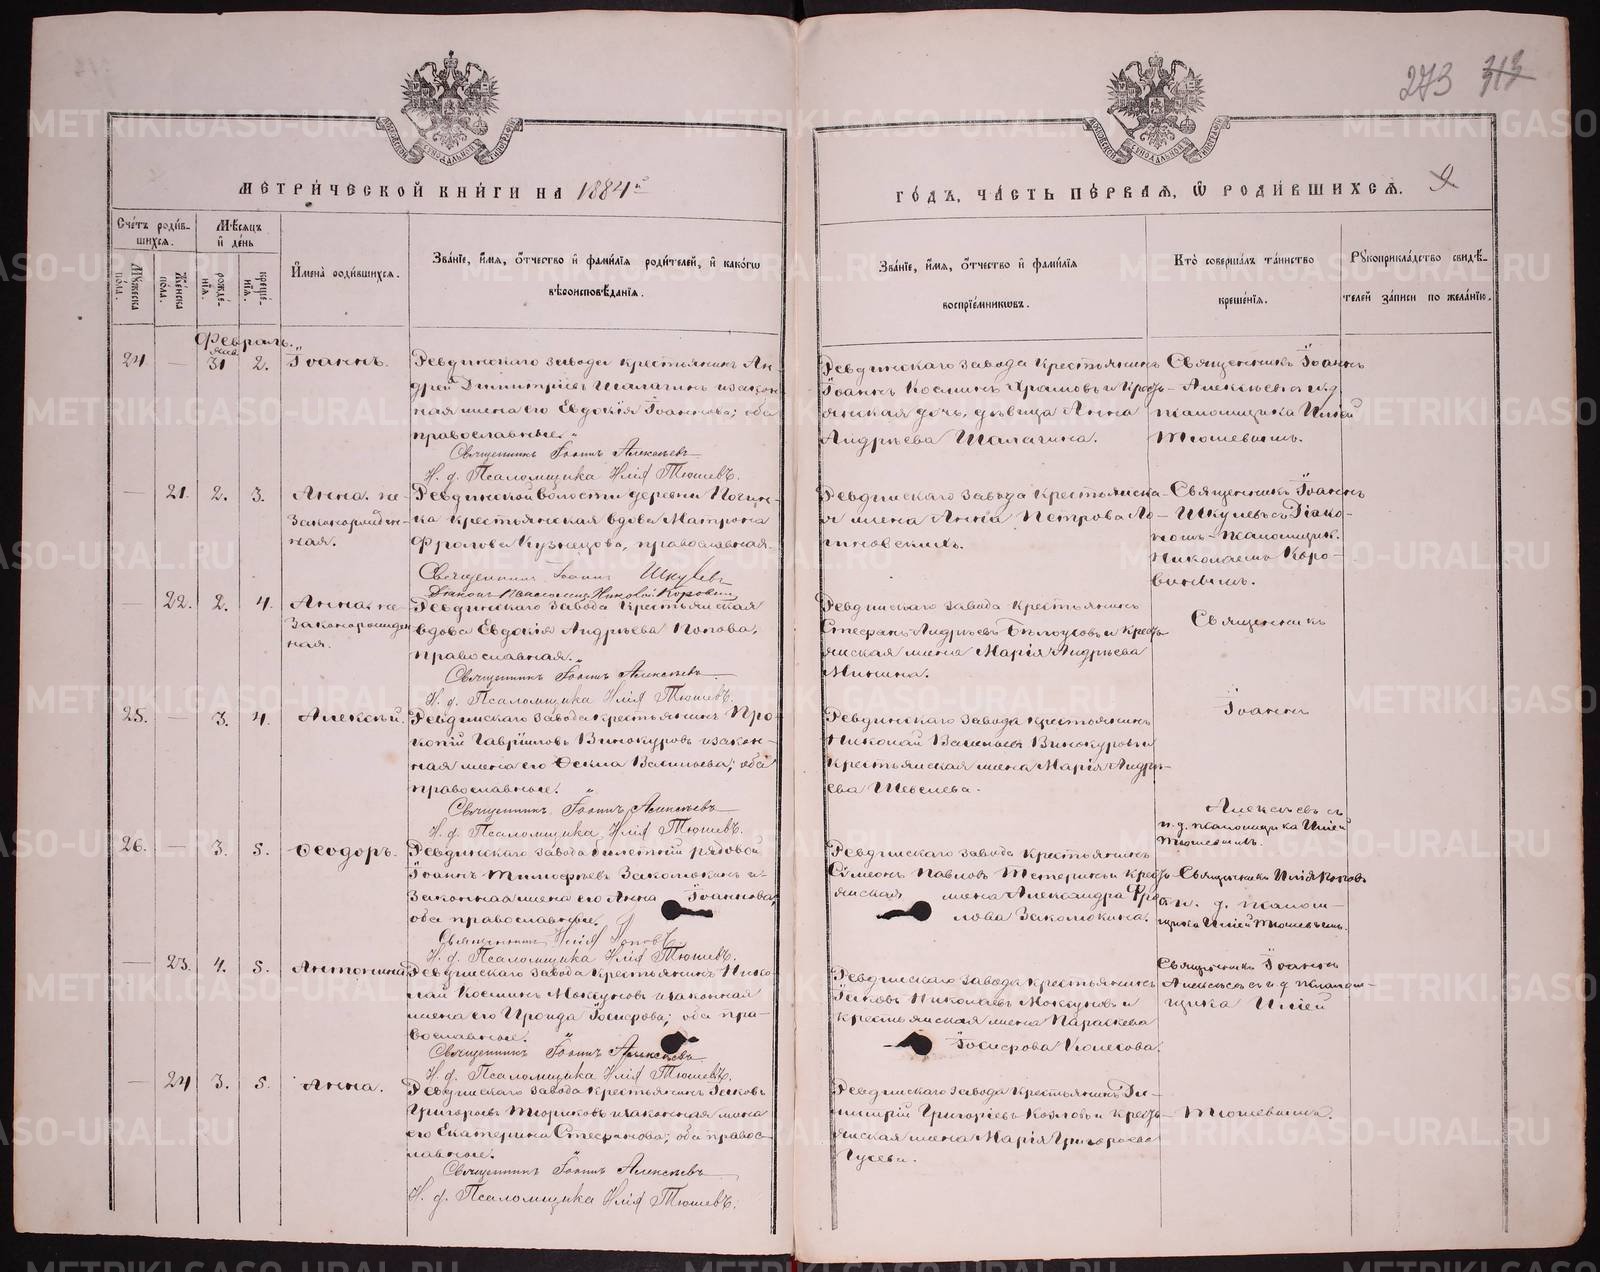 273 313
МЕТРИЧЕСКОЙ КНИГИ НА 1884й
ГОДЪ, ЧАСТЬ ПЕРВАЯ, Ѿ РОДИВШИХСЯ. 9
Счетъ родив-
шихся.
Мѣсяцъ
и день
Мужеска
пола.
Женска
пола.
рожде-
нія.
креще-
нія.
Имена родившихся.
Званіе, имя, отчество и фамилія родителей, и какогѡ
вѣроисповѣданія.
Званіе, имя, отчество и фамилія
воспріемниковъ.
Кто совершалъ таинство
крещенія.
Рукоприкладство свидѣ-
телей записи по желанію.
Февраль.
24 — Янв. 31 2. Іоаннъ.
Ревдинскаго завода крестьянинъ Ан-
дрей Димитріевъ Шалагинъ и закон-
ная жена его Евдокія Іоаннова; оба
православные.
Священникъ Іоаннъ Алексѣевъ
И. д. Псаломщика Илія Тюшевъ.
Ревдинскаго завода крестьянинъ
Іоаннъ Косминъ Храмовъ и кресть-
янская дочь, дѣвица Анна
Андрѣева Шалагина.
Священникъ Іоаннъ
Алексѣевъ с и. д.
псаломщика Иліей
Тюшевымъ.
— 21. 2. 3. Анна не-
законорожден-
ная.
Ревдинской волости деревни Починка крестьянская вдова Матрона
Фролова Кузнецова, православная.
Священникъ Іоаннъ Шкулевъ
Діаконъ Псаломщ. Николай Коровинъ
Ревдинскаго завода крестьянска-
я жена Анна Петрова Ло-
гиновскихъ.
Священникъ Іоаннъ
Шкулевъ съ Діако-
номъ-псаломщик.
Николаемъ Коро-
винымъ.
— 22. 2. 4. Анна не-
законорожден
ная.
Ревдинскаго завода крестьянская
вдова Евдокія Андрѣева Попова,
православная.
Священникъ Іоаннъ Алексѣевъ
И. д. Псаломщика Илія Тюшевъ.
Ревдинскаго завода крестьянинъ
Стефанъ Андрѣевъ Бѣлоусовъ и кресть-
янская жена Марія Андрѣева
Минина.
Священникъ
25. — 3. 4. Алексѣй.
Ревдинскаго завода крестьянинъ Про-
копій Гавріиловъ Винокуровъ и закон-
ная жена его Ѳекла Васильева; оба
православные.
Священникъ Іоаннъ Алексѣевъ
И. д. Псаломщика Илія Тюшевъ.
Ревдинскаго завода крестьянинъ
Николай Васильевъ Винокуровъ и
крестьянская жена Марія Андрѣ-
ева
Іоаннъ
Алексѣевъ съ
и. д. псаломщика Иліей
Тюшевымъ.
26. — 3. 5. Ѳеодоръ.
Ревдинскаго завода билетный рядовой
Іоаннъ Тимофѣевъ Заколюкинъ и
законная жена его Анна Іоаннова;
оба православные.
Священникъ Илія Поповъ.
И. д. Псаломщика Илія Тюшевъ.
Ревдинскаго завода крестьянинъ
Сѵмеонъ Павловъ и кресть-
янская жена Александра Фро
лова Заколюкина.
Священникъ Илія Поповъ
и. д. псалом-
щика Иліей Тюшевымъ.
— 23. 4. 5. Антонина
Ревдинскаго завода крестьянинъ Нико-
лай Косминъ Мокрунов и законная
жена его Ироида Іосифова; оба пра-
вославные.
Священникъ Іоаннъ Алексѣевъ
И. д. Псаломщика Илія Тюшевъ.
Ревдинскаго завода крестьянинъ
Іаковъ Николаевъ и
крестьянская жена Параскева
Іосифова Колесова.
Священникъ Іоаннъ
Алексѣевъ съ и. д. псалом-
щика Иліей
— 24 3. 5. Анна.
Ревдинскаго завода крестьянинъ Іаковъ
Григорьевъ Тюриковъ и законная жена
его Екатерина Стефанова; оба правос-
лавные.
Священникъ Іоаннъ Алексѣевъ
И. д. Псаломщика Илія Тюшевъ.
Ревдинскаго завода крестьянинъ Ди-
митрій Григорьевъ Козловъ и кресть-
янская жена Марія Григорьева
Гусева.
Тюшевымъ.
METRIKI.GASO-URAL.RU